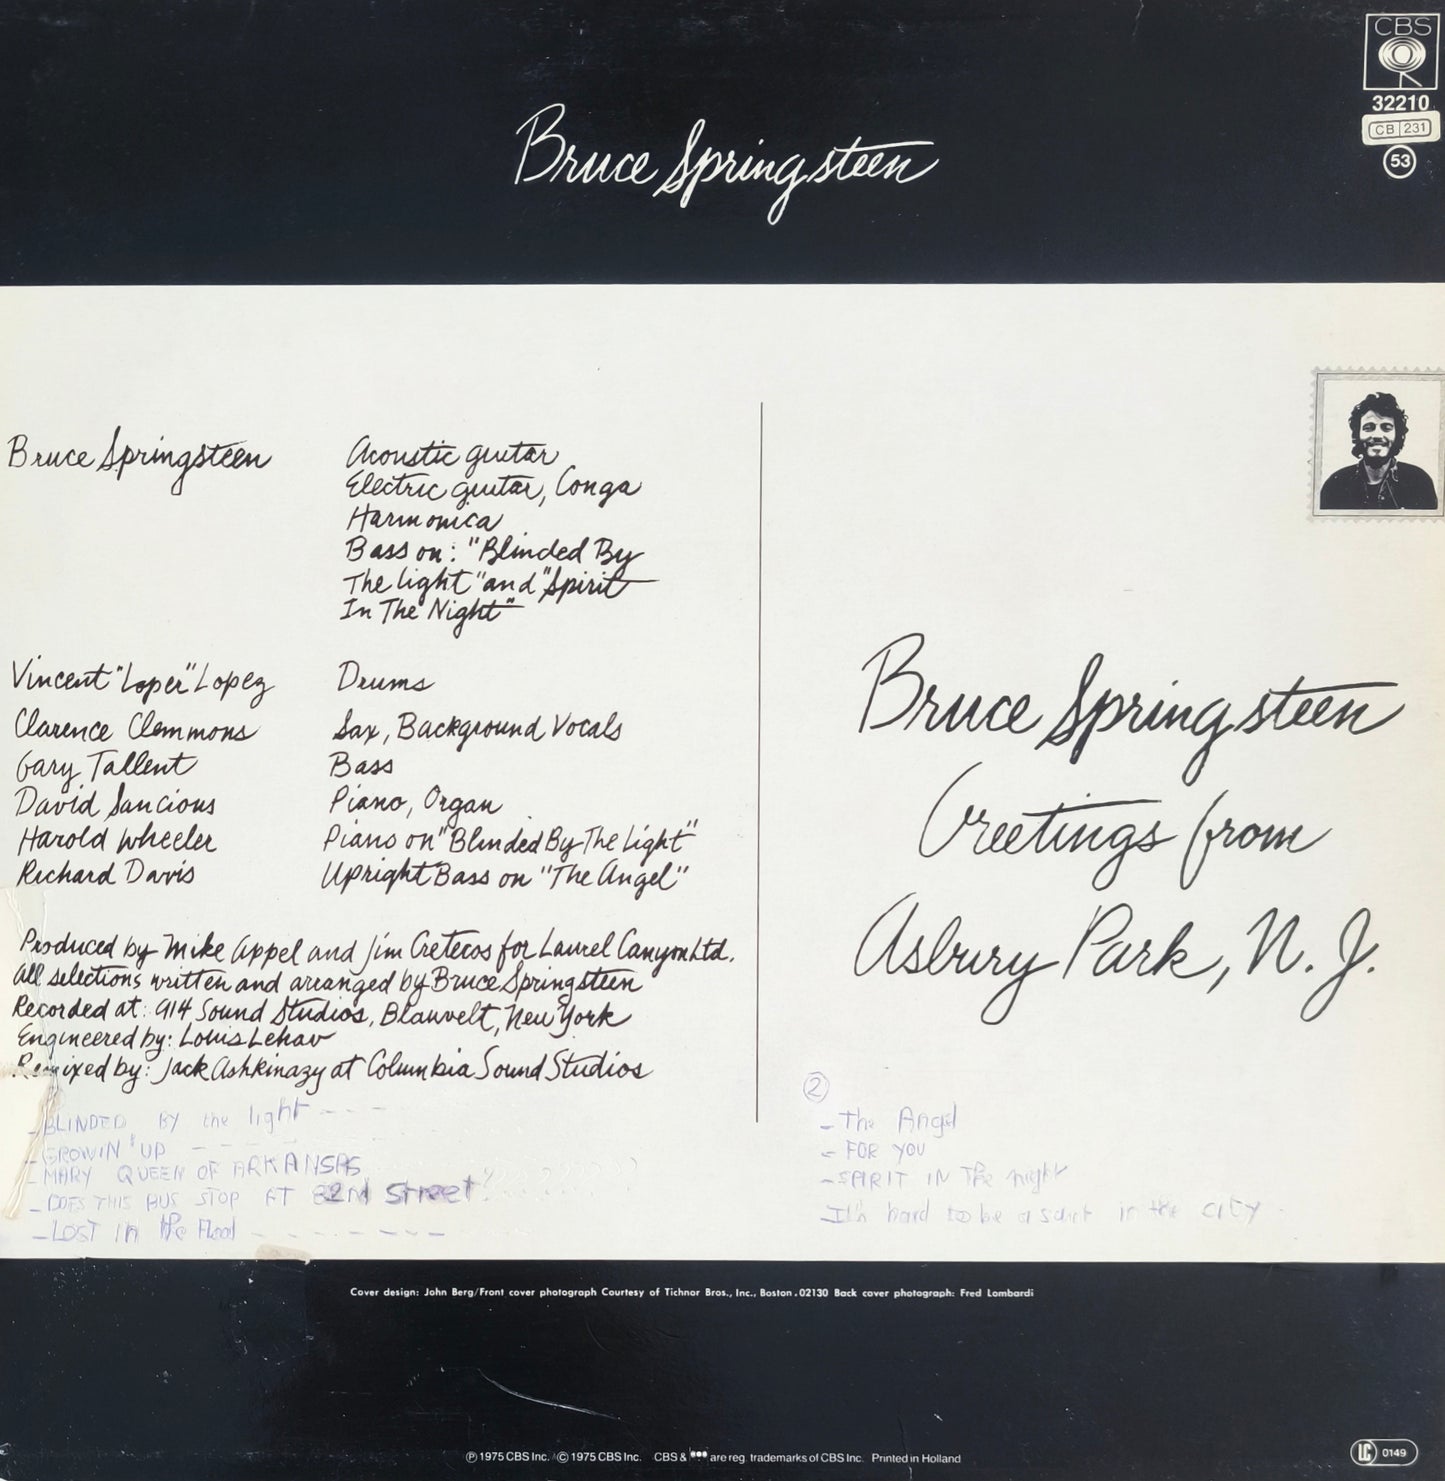 CBS
32210
CB 231
53
Bruce Springsteen
Bruce Springsteen Acoustic guitar
Electric guitar, Conga
Harmonica
Bass on: "Blinded By
The light" and "Spirit
In The Night"
Vincent "Loper" Lopez Drums
Clarence Clemmons Sax, Background Vocals
Gary Tallent Bass
David Sancious Piano, Organ
Harold Wheeler Piano on "Blinded By The Light"
Richard Davis Upright Bass on "The Angel"
Produced by Mike Appel and Jim Cretecos for Laurel Canyon Ltd.
All selections written and arranged by Bruce Springsteen
Recorded at: 914 Sound Studios, Blauvelt, New York
Engineered by: Louis Lehav
Remixed by: Jack Ashkinazy at Columbia Sound Studios
- BLINDED BY the light - - -
- GROWIN' UP - - - - -
- MARY QUEEN OF ARKANSAS
- DOES THIS BUS STOP AT 82nd Street?
- LOST IN the Flood - - - - - -
Bruce Springsteen
Greetings from
Asbury Park, N. J.
2
- The Angel
- FOR YOU
- SPIRIT IN The night
- It's hard to be a saint in the city
Cover design: John Berg/Front cover photograph Courtesy of Tichnor Bros., Inc., Boston. 02130 Back cover photograph: Fred Lombardi
℗ 1975 CBS Inc. © 1975 CBS Inc. CBS & are reg. trademarks of CBS Inc. Printed in Holland
LC 0149